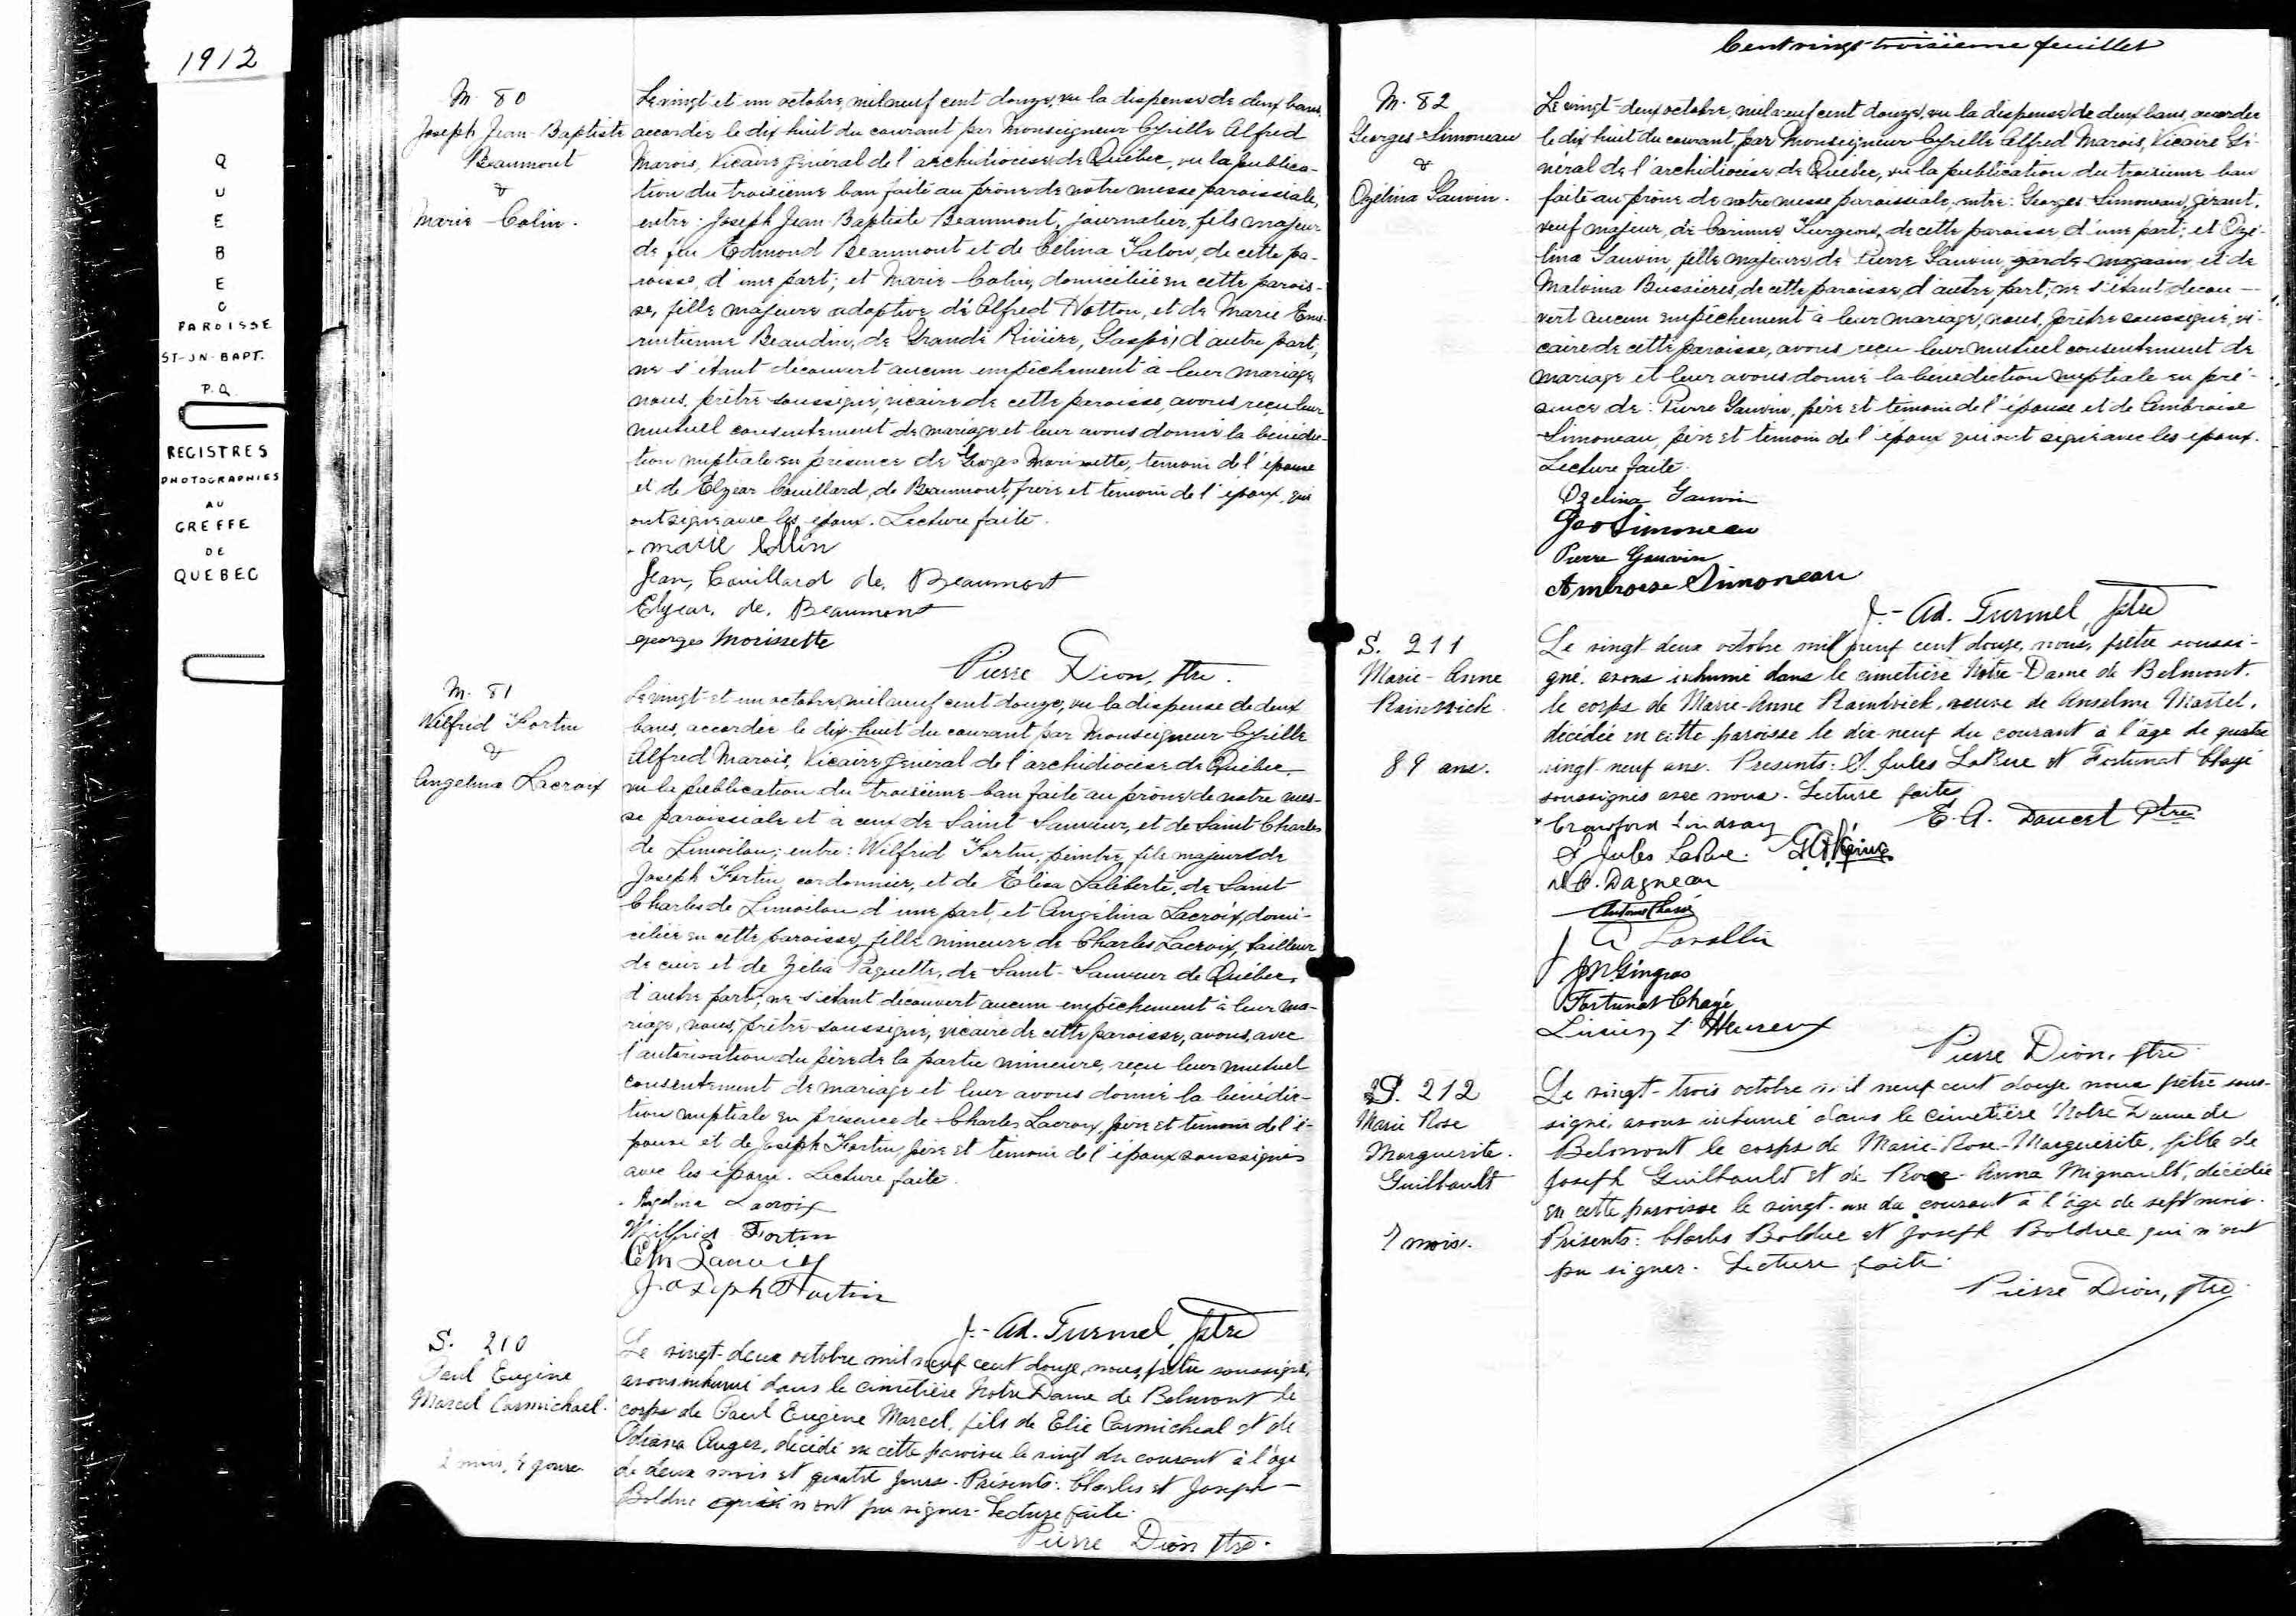 1912
QUEBEC
PAROISSE
ST-JN-BAPT.
P.Q.
REGISTRES
PHOTOGRAPHIES
AU
GREFFE
DE
QUEBEC
M. 80
Joseph Jean-Baptiste
Beaumont
&
Marie Colin.
Le vingt et un octobre, mil neuf cent douze, vu la dispense de deux bans,
accordée le dix huit du courant par Monseigneur Cyrille Alfred
Marois, Vicaire général de l'archidiocèse de Québec, vu la publica-
tion du troisième ban faite au prône de notre messe paroissiale,
entre: Joseph Jean Baptiste Beaumont, journalier, fils majeur
de feu Edmond Beaumont et de Célina de cette pa-
roisse, d'une part; et Marie Colin, domiciliée en cette parois-
se, fille majeure adoptive d'Alfred Hotton, et de Marie Eme-
rentienne Beaudin, de Grande Rivière, Gaspé, d'autre part;
ne s'étant découvert aucun empêchement à leur mariage,
nous, prêtre soussigné, vicaire de cette paroisse, avons reçu leur
mutuel consentement de mariage et leur avons donné la bénédic-
tion nuptiale en présence de Georges Morissette, temoin de l'épouse
et de Elzéar Couillard, de Beaumont, frère et témoin de l'époux, qui
ont signé avec les époux. Lecture faite.
Marie Collin
Jean, Couillard de, Beaumont
Elzéar, de, Beaumont
Georges Morissette
Pierre Dion, ptre.
M. 81
Wilfrid Fortin
&
Angelina Lacroix
Le vingt et un octobre, mil neuf cent douze, vu la dispense de deux
bans, accordée le dix-huit du courant par Monseigneur Cyrille
Alfred Marois, Vicaire général de l'archidiocèse de Québec,
vu la publication du troisième ban faite au prône de notre mes-
se paroissiale et à ceux de Saint Sauveur, et de Saint Charles
de Limoilou; entre: Wilfrid Fortin, peintre, fils majeur de
Joseph Fortin cordonnier, et de Eliza Laliberté, de Saint
Charles de Limoilou d'une part, et Angélina Lacroix, domi-
ciliée en cette paroisse, fille mineure de Charles Lacroix, tailleur
de cuir et de Zélia Paquette, de Saint-Sauveur de Québec,
d'autre part; ne s'étant découvert aucun empêchement à leur ma-
riage, nous, prêtre soussigné, vicaire de cette paroisse, avons, avec
l'autorisation du père de la partie mineure, reçu leur mutuel
consentement de mariage et leur avons donné la bénédic-
tion nuptiale en présence de Charles Lacroix, père et témoin de l'é-
pouse et de Joseph Fortin, père et temoin de l'époux soussignés
avec les époux. Lecture faite.
Angelina Lacroix
Wilfrid Fortin
Joseph Fortin
J.-Ad. Turmel, ptre
S. 210
Paul Eugène
Marcel Carmichael.
2 mois, 4 jours.
Le vingt-deux octobre mil neuf cent douze, nous, prêtre soussigné,
avons inhumé dans le cimetière Notre Dame de Belmont le
corps de Paul Eugène Marcel, fils de Elie Carmicheal et de
Odiana Auger, décédé en cette paroisse le vingt du courant à l'âge
de deux mois et quatre jours. Présents: Charles et Joseph
Bolduc qui n'ont pu signer. Lecture faite.
Pierre Dion ptre.
Cent vingt-troisième feuillet
M. 82
Georges Simoneau
&
Ozélina Gauvin.
Le vingt-deux octobre, mil neuf cent douze, vu la dispense de deux bans, accordée
le dix huit du courant, par Monseigneur Cyrille Alfred Marois, Vicaire Gé-
néral de l'archidiocèse de Québec, vu la publication du troisième ban
faite au prône de notre messe paroissiale, entre: Georges Simoneau, gérant,
veuf majeur, de Corinne Turgeon, de cette paroisse, d'une part; et Ozé-
lina Gauvin, fille majeure de Pierre Gauvin, garde-magasin, et de
Malvina Bussières, de cette paroisse, d'autre part; ne s'étant décou-
vert aucun empêchement à leur mariage, nous, prêtre soussigné, vi-
caire de cette paroisse, avons reçu leur mutuel consentement de
mariage et leur avons donné la bénédiction nuptiale en pré-
sence de: Pierre Gauvin, père et temoin de l'épouse et de Ambroise
Simoneau, père et temoin de l'époux qui ont signé avec les époux.
Lecture faite.
Ozelina Gauvin
Geo Simoneau
Pierre Gauvin
Ambroise Simoneau
J.-Ad. Turmel, ptre
S. 211
Marie-Anne
Rainswick
89 ans.
Le vingt deux octobre mil neuf cent douze, nous, prêtre soussi-
gné, avons inhumé dans le cimetière Notre-Dame de Belmont,
le corps de Marie-Anne veuve de Anselme Martel,
décédée en cette paroisse le dix-neuf du courant à l'âge de quatre
vingt-neuf ans. Présents: S. Jules LaRue et Fortunat Chagé
soussignés avec nous. Lecture faite.
E. A. Doucet Ptre
Crawford Lindsay
S Jules LaRue.
Dagneau
J A Lavallée
JN Gingras
Fortunat Chagé
Lucien L'Heureux
Pierre Dion, ptre
S. 212
Marie Rose
Marguerite.
Guilbault
7 mois.
Le vingt-trois octobre mil neuf cent douze nous prêtre sous-
signé, avons inhumé dans le cimetière Notre Dame de
Belmont le corps de Marie-Rose-Marguerite, fille de
Joseph Guilbault et de Rose-Anna Mignault, décédée
en cette paroisse le vingt-un du courant à l'âge de sept mois.
Présents: Charles Bolduc et Joseph Bolduc qui n'ont
pu signer. Lecture faite.
Pierre Dion, ptre